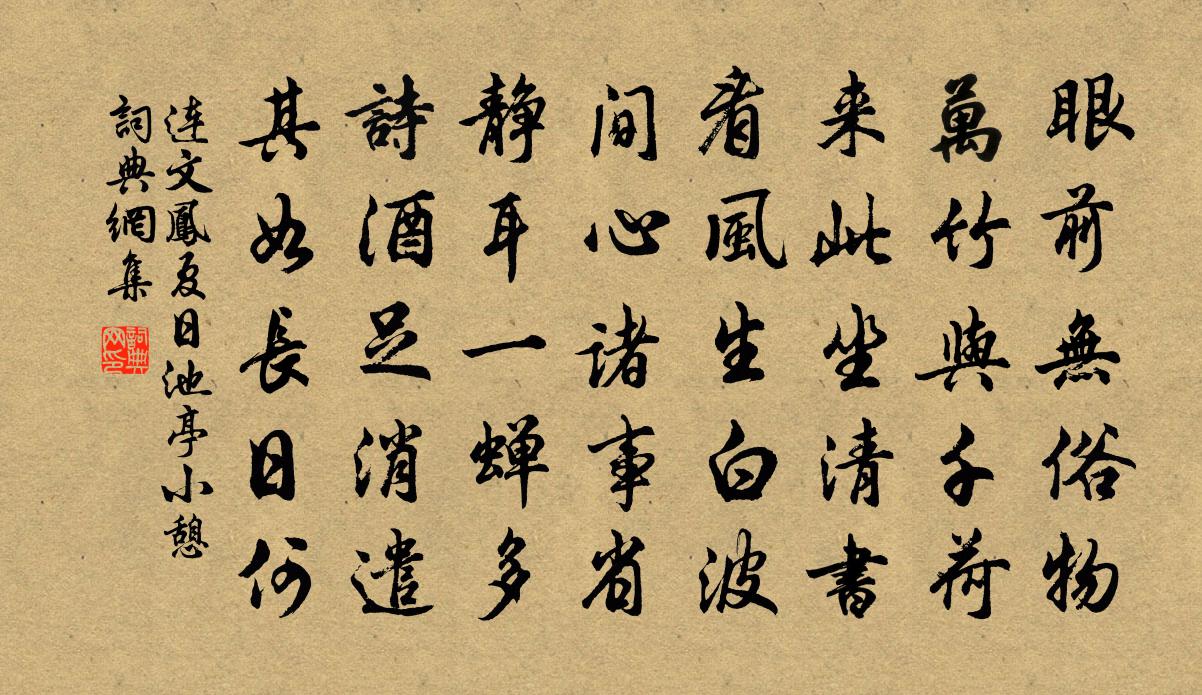 眼前無俗物
萬竹與千荷
来此坐清書
看風生白波
間心諸事省
静耳一蟬多
詩酒足消遣
其如長日何
连文鳳夏日池亭小憩
詞典網集
詞典
网印